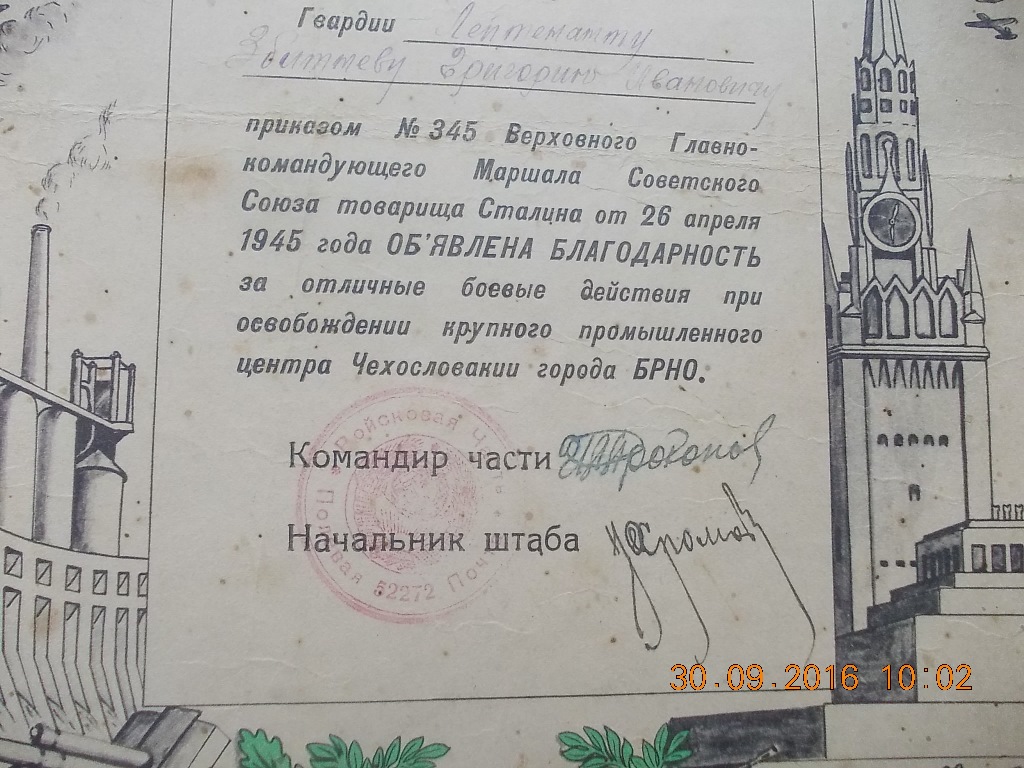 Гвардии Лейтенанту
Григорию Ивановичу
приказом № 345 Верховного Главно-
командующего Маршала Советского
Союза товарища Сталина от 26 апреля
1945 года ОБ'ЯВЛЕНА БЛАГОДАРНОСТЬ
за отличные боевые действия при
освобождении крупного промышленного
центра Чехословакии города БРНО.
Командир части
Начальник штаба
Войсковая Часть
Полевая 52272 Почта
30.09.2016 10:02